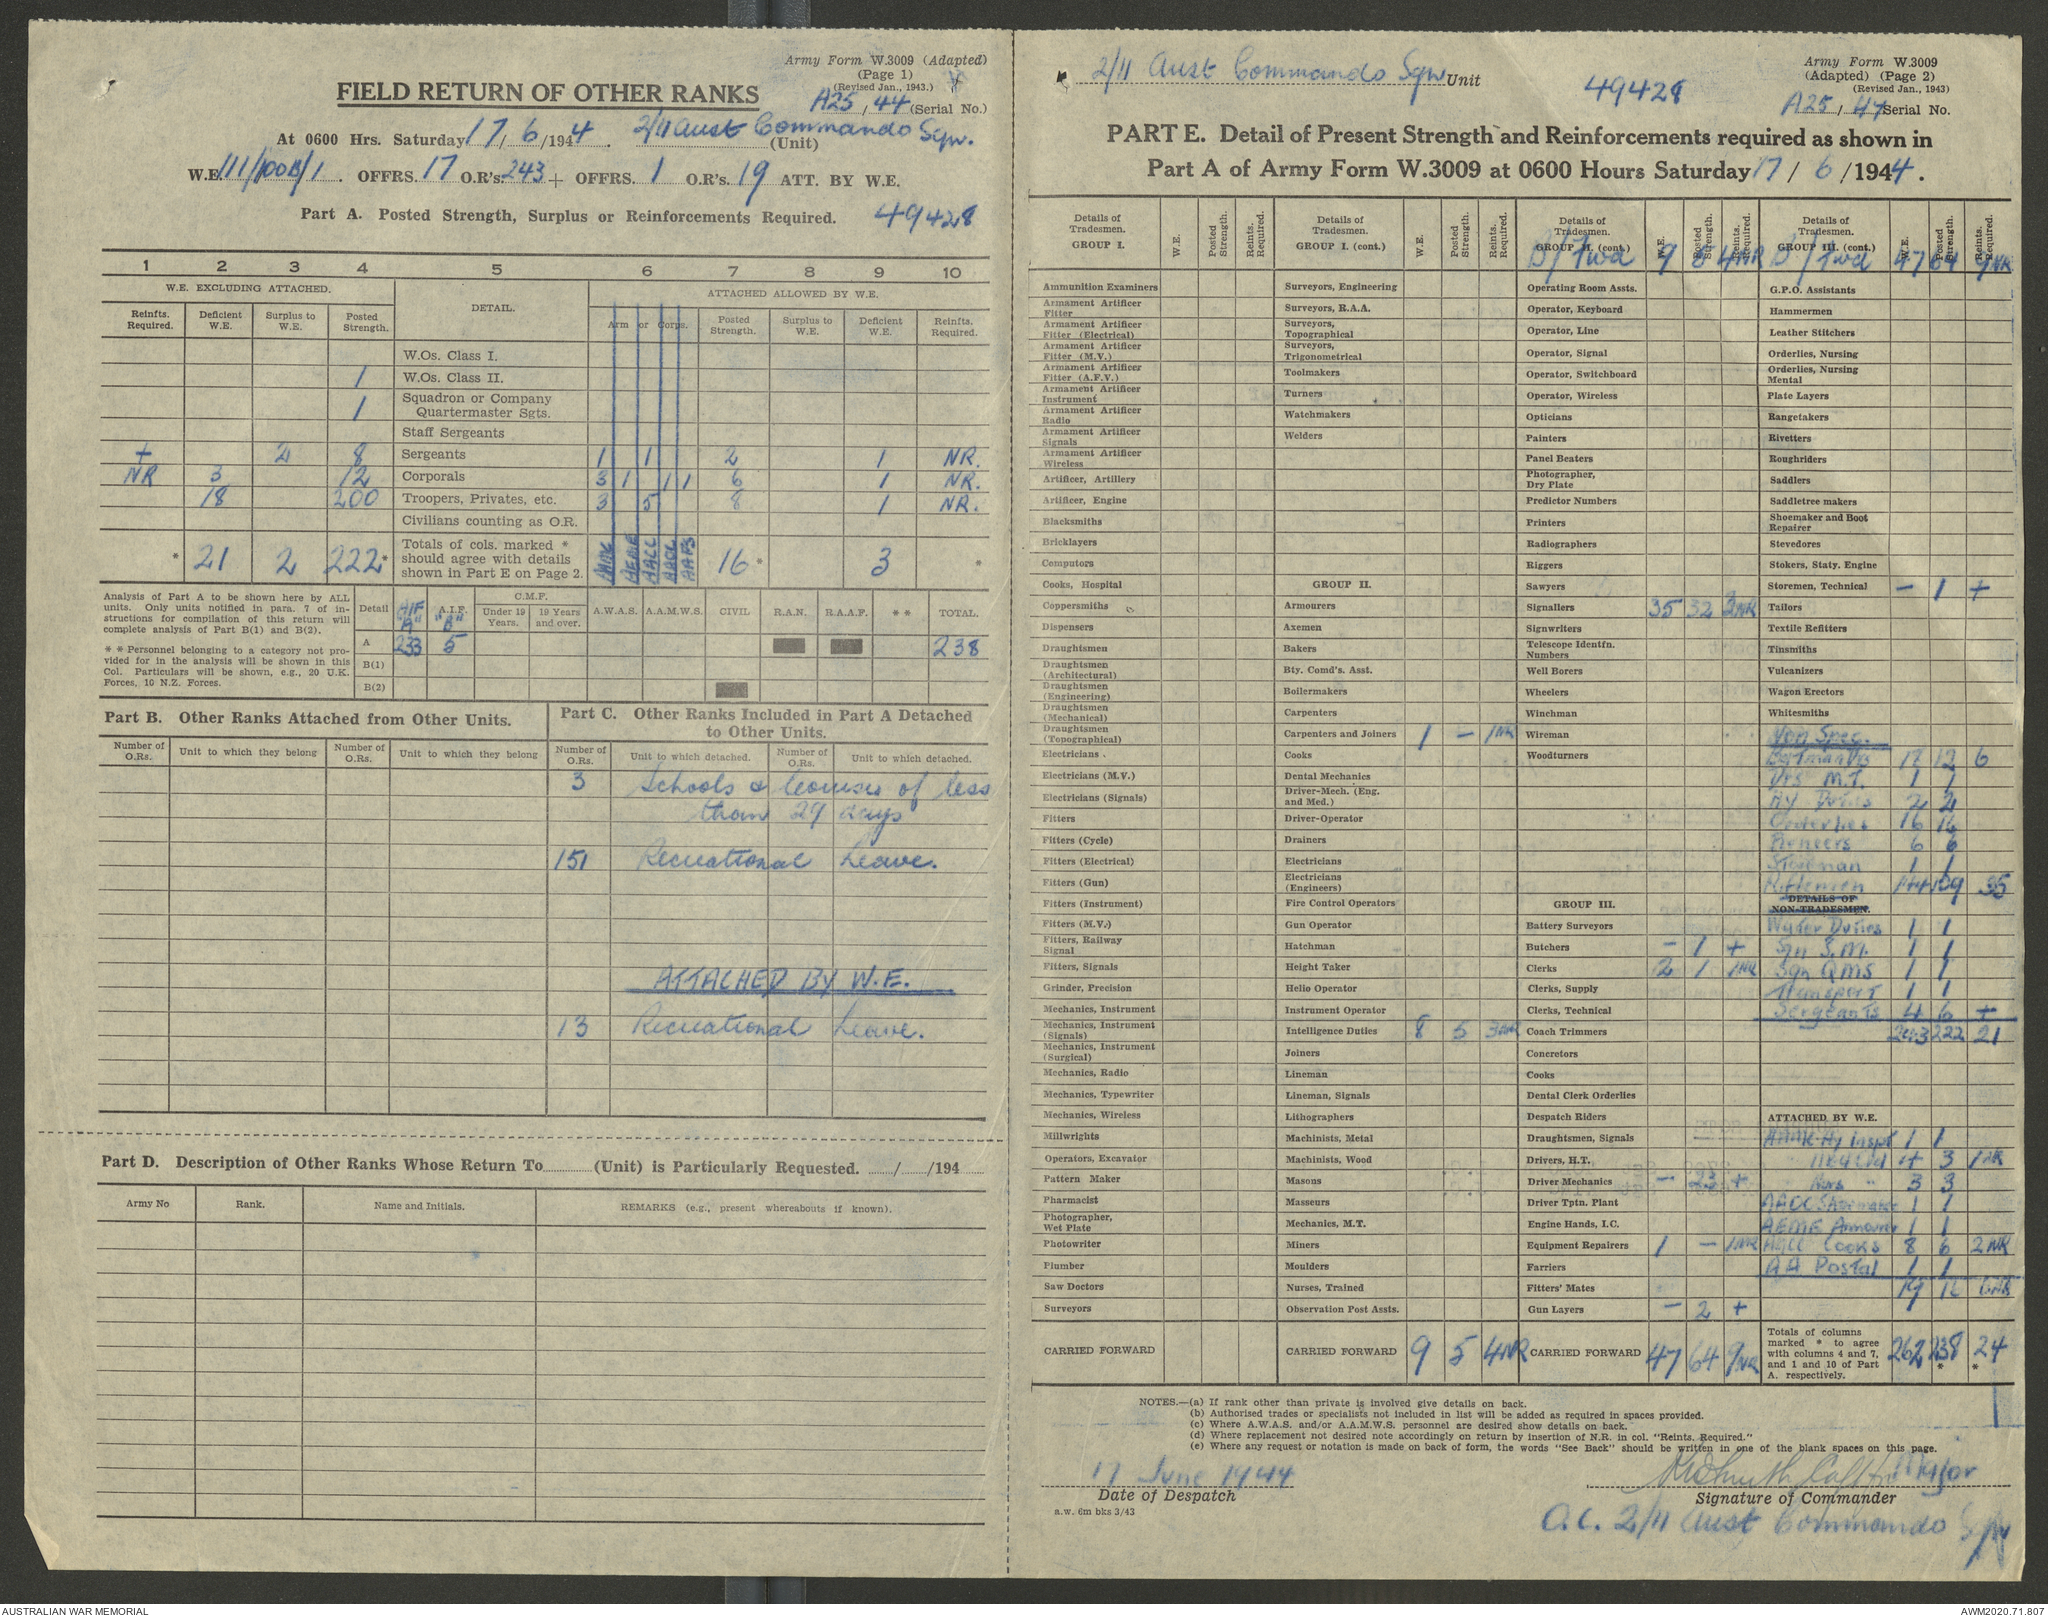 Army Form W.3009 (Adapted)
(Page 1)
(Revised Jan., 1943.)
FIELD RETURN OF OTHER RANKS
A25/44 (Serial No.)
At 0600 Hrs. Saturday 17/6/1944. 2/11 Aust Commando Sqn.
(Unit)
W.E. 111/100B/1. OFFRS. 17 O.R's. 243 + OFFRS. 1 O.R's. 19 ATT. BY W.E.
Part A. Posted Strength, Surplus or Reinforcements Required. 49428
1 2 3 4 5 6 7 8 9 10
W.E. EXCLUDING ATTACHED. DETAIL. ATTACHED ALLOWED BY W.E.
Reinfts. Required. Deficient W.E. Surplus to W.E. Posted Strength. Arm or Corps. Posted Strength. Surplus to W.E. Deficient W.E. Reinfts. Required.
W.Os. Class I.
1 W.Os. Class II.
1 Squadron or Company Quartermaster Sgts.
Staff Sergeants
+ 2 8 Sergeants 1 1 2 1 NR.
NR 3 12 Corporals 3 1 1 1 6 1 NR.
18 200 Troopers, Privates, etc. 3 5 8 1 NR.
Civilians counting as O.R.
* 21 2 222* Totals of cols. marked * should agree with details shown in Part E on Page 2. AAMC AEME AACC AAOC AAPS 16* 3 *
Analysis of Part A to be shown here by ALL units. Only units notified in para. 7 of instructions for compilation of this return will complete analysis of Part B(1) and B(2).
* * Personnel belonging to a category not provided for in the analysis will be shown in this Col. Particulars will be shown, e.g., 20 U.K. Forces, 10 N.Z. Forces.
Detail AIF "A" A.I.F. "B" C.M.F. Under 19 Years. 19 Years and over. A.W.A.S. A.A.M.W.S. CIVIL R.A.N. R.A.A.F. * * TOTAL.
A 233 5 238
B(1)
B(2)
Part B. Other Ranks Attached from Other Units.
Number of O.Rs. Unit to which they belong Number of O.Rs. Unit to which they belong
Part C. Other Ranks Included in Part A Detached to Other Units.
Number of O.Rs. Unit to which detached. Number of O.Rs. Unit to which detached.
3 Schools & Courses of less
than 29 days
151 Recreational Leave.
ATTACHED BY W.E.
13 Recreational Leave.
Part D. Description of Other Ranks Whose Return To (Unit) is Particularly Requested. / /194
Army No Rank. Name and Initials. REMARKS (e.g., present whereabouts if known).
2/11 Aust Commando Sqn Unit 49428
Army Form W.3009
(Adapted) (Page 2)
(Revised Jan., 1943)
A25/44 Serial No.
PART E. Detail of Present Strength and Reinforcements required as shown in
Part A of Army Form W.3009 at 0600 Hours Saturday 17/6/1944.
Details of Tradesmen. GROUP I. W.E. Posted Strength. Reints. Required.
Ammunition Examiners
Armament Artificer Fitter
Armament Artificer Fitter (Electrical)
Armament Artificer Fitter (M.V.)
Armament Artificer Fitter (A.F.V.)
Armament Artificer Instrument
Armament Artificer Radio
Armament Artificer Signals
Armament Artificer Wireless
Artificer, Artillery
Artificer, Engine
Blacksmiths
Bricklayers
Computors
Cooks, Hospital
Coppersmiths
Dispensers
Draughtsmen
Draughtsmen (Architectural)
Draughtsmen (Engineering)
Draughtsmen (Mechanical)
Draughtsmen (Topographical)
Electricians
Electricians (M.V.)
Electricians (Signals)
Fitters
Fitters (Cycle)
Fitters (Electrical)
Fitters (Gun)
Fitters (Instrument)
Fitters (M.V.)
Fitters, Railway Signal
Fitters, Signals
Grinder, Precision
Mechanics, Instrument
Mechanics, Instrument (Signals)
Mechanics, Instrument (Surgical)
Mechanics, Radio
Mechanics, Typewriter
Mechanics, Wireless
Millwrights
Operators, Excavator
Pattern Maker
Pharmacist
Photographer, Wet Plate
Photowriter
Plumber
Saw Doctors
Surveyors
CARRIED FORWARD
Details of Tradesmen. GROUP I. (cont.) W.E. Posted Strength. Reints. Required.
Surveyors, Engineering
Surveyors, R.A.A.
Surveyors, Topographical
Surveyors, Trigonometrical
Toolmakers
Turners
Watchmakers
Welders
GROUP II.
Armourers
Axemen
Bakers
Bty. Comd's. Asst.
Boilermakers
Carpenters
Carpenters and Joiners 1 - 1NR
Cooks
Dental Mechanics
Driver-Mech. (Eng. and Med.)
Driver-Operator
Drainers
Electricians
Electricians (Engineers)
Fire Control Operators
Gun Operator
Hatchman
Height Taker
Helio Operator
Instrument Operator
Intelligence Duties 8 5 3NR
Joiners
Lineman
Lineman, Signals
Lithographers
Machinists, Metal
Machinists, Wood
Masons
Masseurs
Mechanics, M.T.
Miners
Moulders
Nurses, Trained
Observation Post Assts.
CARRIED FORWARD 9 5 4NR
Details of Tradesmen. GROUP II. (cont.) W.E. Posted Strength. Reints. Required.
B/Fwd 9 5 4NR
Operating Room Assts.
Operator, Keyboard
Operator, Line
Operator, Signal
Operator, Switchboard
Operator, Wireless
Opticians
Painters
Panel Beaters
Photographer, Dry Plate
Predictor Numbers
Printers
Radiographers
Riggers
Sawyers
Signallers 35 32 3NR
Signwriters
Telescope Identfn. Numbers
Well Borers
Wheelers
Winchman
Wireman
Woodturners
GROUP III.
Battery Surveyors
Butchers - 1 +
Clerks 2 1 1NR
Clerks, Supply
Clerks, Technical
Coach Trimmers
Concretors
Cooks
Dental Clerk Orderlies
Despatch Riders
Draughtsmen, Signals
Drivers, H.T.
Driver Mechanics - 23 +
Driver Tptn. Plant
Engine Hands, I.C.
Equipment Repairers 1 - 1NR
Farriers
Fitters' Mates
Gun Layers - 2 +
CARRIED FORWARD 47 64 9NR
Details of Tradesmen. GROUP III. (cont.) W.E. Posted Strength. Reints. Required.
B/Fwd 47 64 9NR
G.P.O. Assistants
Hammermen
Leather Stitchers
Orderlies, Nursing
Orderlies, Nursing Mental
Plate Layers
Rangetakers
Rivetters
Roughriders
Saddlers
Saddletree makers
Shoemaker and Boot Repairer
Stevedores
Stokers, Staty. Engine
Storemen, Technical - 1 +
Tailors
Textile Refitters
Tinsmiths
Vulcanizers
Wagon Erectors
Whitesmiths
Non Spec.
Batman Drs 12 6
Drs M.T. 1 1
Hy Duties 2 2
Orderlies 16 16
Pioneers 6 6
Storeman 1 1
Riflemen 144 109 35
DETAILS OF NON-TRADESMEN.
Water Duties 1 1
Sqn S.M. 1 1
Sqn QMS 1 1
Transport 1 1
Sergeants 4 6 +
243 222 21
ATTACHED BY W.E.
AAMC Hy Inspt 1 1
4 3 1NR
Nurs " 3 3
AAOC Shoemaker 1 1
AEME Armourer 1 1
AACC Cooks 8 6 2NR
AA Postal 1 1
19 16
Totals of columns marked * to agree with columns 4 and 7, and 1 and 10 of Part A. respectively. 262 238* 24*
NOTES.—(a) If rank other than private is involved give details on back.
(b) Authorised trades or specialists not included in list will be added as required in spaces provided.
(c) Where A.W.A.S. and/or A.A.M.W.S. personnel are desired show details on back.
(d) Where replacement not desired note accordingly on return by insertion of N.R. in col. "Reints. Required."
(e) Where any request or notation is made on back of form, the words "See Back" should be written in one of the blank spaces on this page.
17 June 1944
Date of Despatch
a.w. 6m bks 3/43
Major
Signature of Commander
O.C. 2/11 Aust Commando Sqn
AUSTRALIAN WAR MEMORIAL
AWM2020.71.807